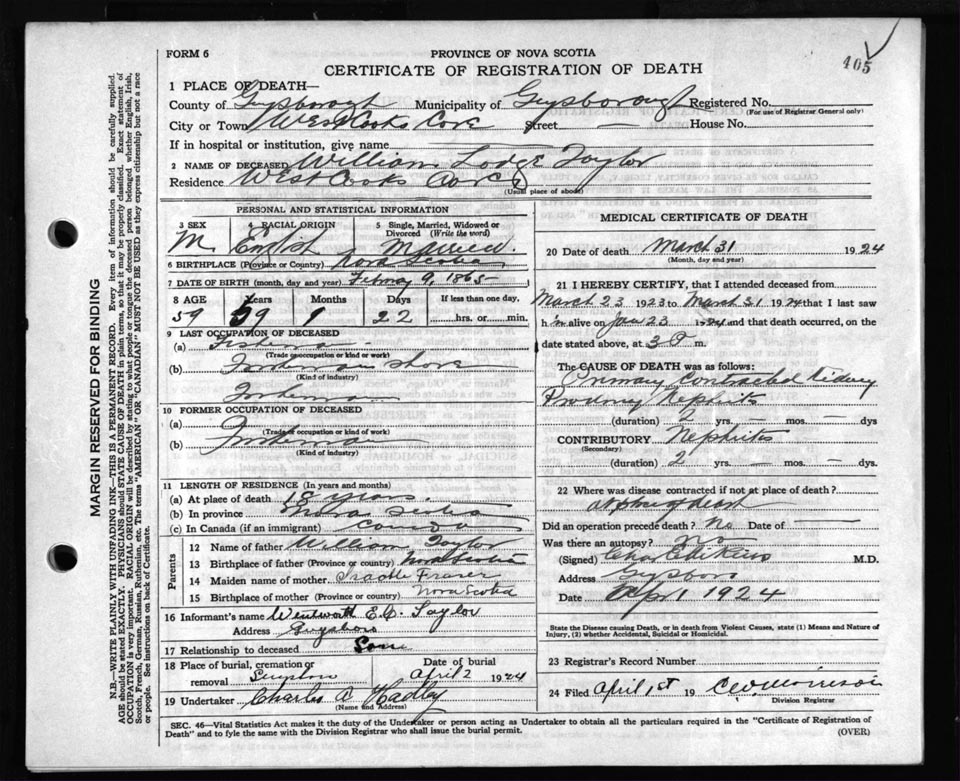 405
FORM 6
PROVINCE OF NOVA SCOTIA
CERTIFICATE OF REGISTRATION OF DEATH
1 PLACE OF DEATH—
County of Guysborough Municipality of Guysborough Registered No.
(For use of Registrar General only)
City or Town West Cooks Cove Street — House No.
If in hospital or institution, give name
2 NAME OF DECEASED William Lodge Taylor
Residence West Cooks Cove
(Usual place of abode)
PERSONAL AND STATISTICAL INFORMATION
3 SEX
M
4 RACIAL ORIGIN
English
5 Single, Married, Widowed or Divorced (Write the word)
Married.
6 BIRTHPLACE (Province or Country) Nova Scotia
7 DATE OF BIRTH (month, day and year) 9, 1865
8 AGE Years Months Days If less than one day,
59 59 1 22 hrs. or min.
9 LAST OCCUPATION OF DECEASED
(a) Fisherman
(Trade or occupation or kind or work)
(b) shore
(Kind of industry)
10 FORMER OCCUPATION OF DECEASED
(a)
(Trade or occupation or kind of work)
(b)
(Kind of industry)
11 LENGTH OF RESIDENCE (In years and months)
(a) At place of death 18 years.
(b) In province Nova Scotia
(c) In Canada (if an immigrant)
Parents
12 Name of father William Taylor
13 Birthplace of father (Province or country) Nova Scotia
14 Maiden name of mother Fraser
15 Birthplace of mother (Province or country) Nova Scotia
16 Informant's name Wentworth E. Taylor
Address Guysboro
17 Relationship to deceased
18 Place of burial, cremation or removal
Date of burial
April 2 1924
19 Undertaker Charles A Hadley
(Name and Address)
MEDICAL CERTIFICATE OF DEATH
20 Date of death March 31 1924
(Month, day and year)
21 I HEREBY CERTIFY, that I attended deceased from
March 23 1923 to March 31 1924 that I last saw
him alive on Jan 23 1924 and that death occurred, on
date stated above, at 3 P m.
The CAUSE OF DEATH was as follows:
Primary Contracted Kidney
Nephritis
(duration) 2 yrs. mos. dys
CONTRIBUTORY Nephritis
(Secondary)
(duration) 2 yrs. — mos. — dys.
22 Where was disease contracted if not at place of death?
at place of death
Did an operation precede death? No Date of —
Was there an autopsy? No
(Signed) M.D.
Address Guysboro
Date Apr 1 1924
State the Disease causing Death, or in death from Violent Causes, state (1) Means and Nature of
Injury, (2) whether Accidental, Suicidal or Homicidal.
23 Registrar's Record Number
24 Filed April 1st 19 C W Morrison
Division Registrar
SEC. 46—Vital Statistics Act makes it the duty of the Undertaker or person acting as Undertaker to obtain all the particulars required in the "Certificate of Registration of
Death" and to fyle the same with the Division Registrar who shall issue the burial permit.
(OVER)
MARGIN RESERVED FOR BINDING
N.B.—WRITE PLAINLY WITH UNFADING INK—THIS IS A PERMANENT RECORD. Every item of information should be carefully supplied.
AGE should be stated EXACTLY. PHYSICIANS should STATE CAUSE OF DEATH in plain terms, so that it may be properly classified. Exact statement of
OCCUPATION is very important. RACIAL ORIGIN will be described by stating to what people or tongue the deceased person belonged whether English, Irish,
Scotch, French, German, Russian, Ruthenian, etc. The terms "AMERICAN" OR "CANADIAN" MUST NOT BE USED as they express citizenship but not a race
or people. See instructions on back of Certificate.